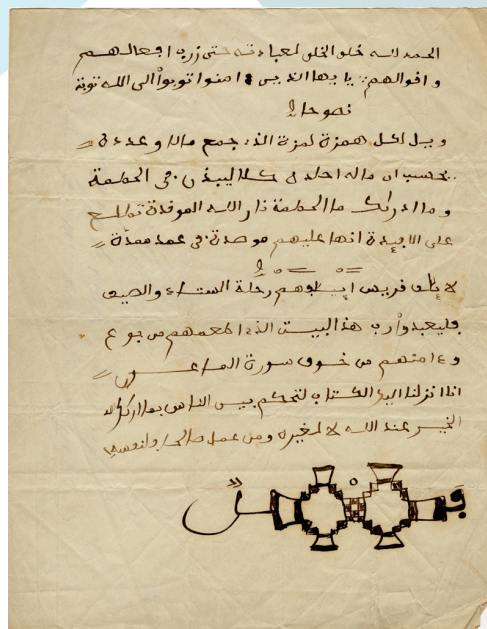 الحمد لله خلو الخلو لعباد ته حتى زرب افعالهم
و افوالهم يا يها الذين ءامنوا توبوا الى الله توبة
نصوحا
ويل لكل همزة لمزة الذ جمع مالا وعدده
يحسب ان ماله اخلده كلا لينبذن في الحطمة
وما ادريك ما الحطمة نار الله الموفدة تطلع
على الافيدة انها عليهم موصدة في عمد ممددة
لا يلف فريش إيلفهم رحلة الشتاء والصيف
فليعبدوا رب هذا البيت الذ اطعمهم من جوع
و ءامنهم من خوف سورة الماعون
انا انزلنا اليك الكتاب لتحكم بين الناس بما اريك الله
الخير عند الله لا لغيره ومن عمل صالحا